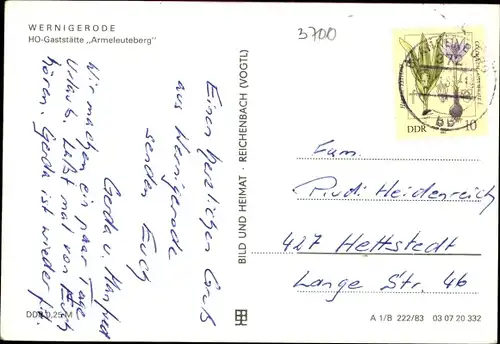 WERNIGERODE
HO-Gaststätte „Armeleuteberg"
3700
Einen herzlichen Gruß
aus Wernigerode
senden Euch
Gerda u. Manfred
Wir machen ein paar Tage
Urlaub. Laßt mal von Euch
hören. Gerda ist wieder fit.
BILD UND HEIMAT · REICHENBACH (VOGTL)
DDR
10
372
Fam.
Rudi Heidenreich
427 Hettstedt
Lange Str. 46
DDR 0,25 M
A 1/B 222/83 03 07 20 332